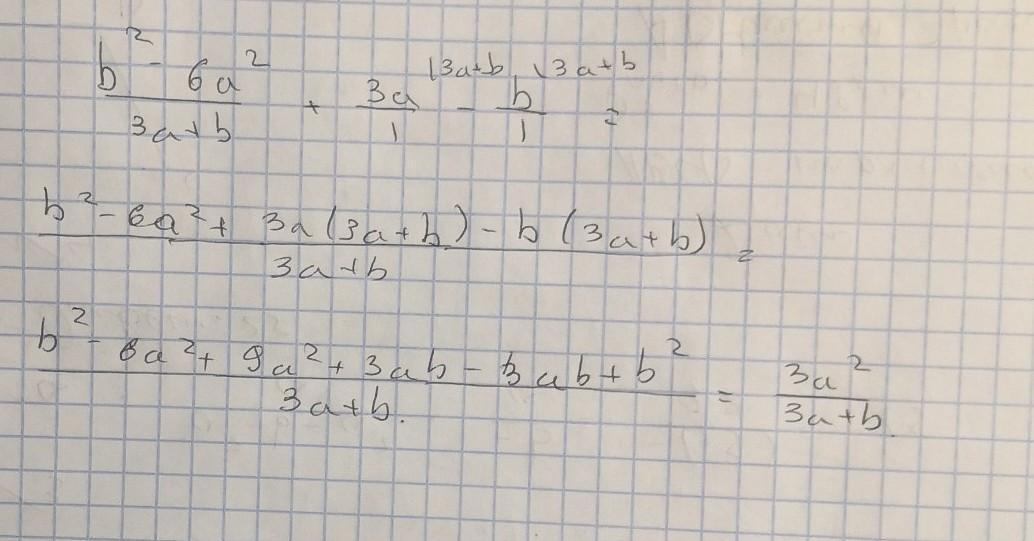 (b² - 6a²)/(3a+b) + 3a/1 \3a+b - b/1 \3a+b =
(b² - 6a² + 3a(3a+b) - b(3a+b))/(3a+b) =
(b² - 6a² + 9a² + 3ab - 3ab + b²)/(3a+b). = 3a²/(3a+b).